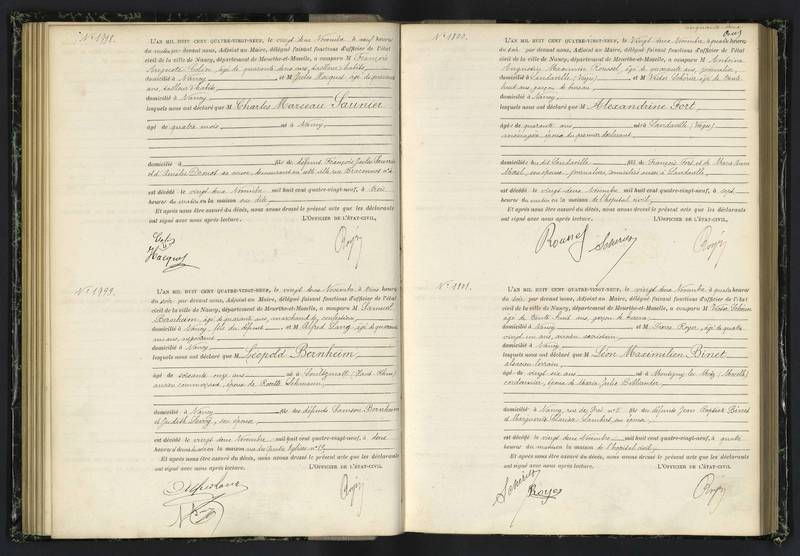 N° 1798.
L'AN MIL HUIT CENT QUATRE-VINGT-NEUF, le vingt deux Novembre à neuf heures
du matin par devant nous, Adjoint au Maire, délégué faisant fonctions d'officier de l'état
civil de la ville de Nancy, département de Meurthe-et-Moselle, a comparu M François
Auguste Colin, âgé de quarante deux ans, tailleur d'habits,
domicilié à Nancy et M Jules Hacquel, âgé de
ans, tailleur d'habits
domicilié à Nancy
lesquels nous ont déclaré que M Charles Marceau Saunier
âgé de quatre mois né à Nancy,
domicilié à fils de défunt François Jules Saunier
et d'Amélie Drouot sa veuve, demeurant en cette ville rue Braconnot n°
est décédé le vingt deux Novembre mil huit cent quatre-vingt-neuf, à trois
heures du matin en la maison sus dite,
Et après nous être assuré du décès, nous avons dressé le présent acte que les déclarants
ont signé avec nous après lecture. L'OFFICIER DE L'ÉTAT-CIVIL,
N° 1799.
L'AN MIL HUIT CENT QUATRE-VINGT-NEUF, le vingt deux Novembre à trois heures
du soir par devant nous, Adjoint au Maire, délégué faisant fonctions d'officier de l'état
civil de la ville de Nancy, département de Meurthe-et-Moselle, a comparu M Samuel
Bernheim, âgé de quarante ans, marchand de confection,
domicilié à Nancy, fils du défunt et M Alfred Lang, âgé de quarante
ans, négociant
domicilié à Nancy
lesquels nous ont déclaré que M Léopold Bernheim,
âgé de soixante onze ans né à Soultzmatt (Haut Rhin)
ancien commerçant, époux de Rosette Lehmann,
domicilié à Nancy fils des défunts Samson Bernheim
et Judith Levy, son épouse,
est décédé le vingt deux Novembre mil huit cent quatre-vingt-neuf, à deux
heures en la maison rue
Et après nous être assuré du décès, nous avons dressé le présent acte que les déclarants
ont signé avec nous après lecture. L'OFFICIER DE L'ÉTAT-CIVIL
N° 1800.
L'AN MIL HUIT CENT QUATRE-VINGT-NEUF, le Vingt deux Novembre à quatre heures
du soir par devant nous, Adjoint au Maire, délégué faisant fonctions d'officier de l'état
civil de la ville de Nancy, département de Meurthe-et-Moselle, a comparu M Antoine
Augustin Maximin Roussel, âgé de quarante ans, journalier,
domicilié à Landaville (Vosges) et M Victor Schérier âgé de trente
huit ans, garçon de bureau
domicilié à Nancy,
lesquels nous ont déclaré que M Alexandrine Fort,
âgée de quarante ans, née à Landaville (Vosges)
ménagère, épouse du premier déclarant
domiciliée au dit Landaville, fille de François Fort et de Marie Anne
Noël, son épouse, journaliers, domiciliés aussi à Landaville,
est décédée le vingt deux Novembre mil huit cent quatre-vingt-neuf, à sept
heures du matin en la maison de l'hôpital civil,
Et après nous être assuré du décès, nous avons dressé le présent acte que les déclarants
ont signé avec nous après lecture. L'OFFICIER DE L'ÉTAT-CIVIL,
N° 1801.
L'AN MIL HUIT CENT QUATRE-VINGT-NEUF, le vingt deux Novembre à quatre heures
du soir par devant nous, Adjoint au Maire, délégué faisant fonctions d'officier de l'état
civil de la ville de Nancy, département de Meurthe-et-Moselle, a comparu M Victor Schérier
âgé de trente huit ans, garçon de bureau
domicilié à Nancy et M Pierre Royer, âgé de quatre
vingt un ans, ancien
domicilié à Nancy
lesquels nous ont déclaré que M Léon Maximilien Binet,
alsacien lorrain,
âgé de vingt six ans né à Montigny les Metz (Moselle)
cordonnier, époux de Marie Julie
domicilié à Nancy, rue fils des défunts Jean Baptiste Binet
et Marguerite son épouse
est décédé le vingt deux Novembre mil huit cent quatre-vingt-neuf, à quatre
heures du matin en la maison de l'hôpital civil,
Et après nous être assuré du décès, nous avons dressé le présent acte que les déclarants
ont signé avec nous après lecture. L'OFFICIER DE L'ÉTAT-CIVIL
Schérier
Royer